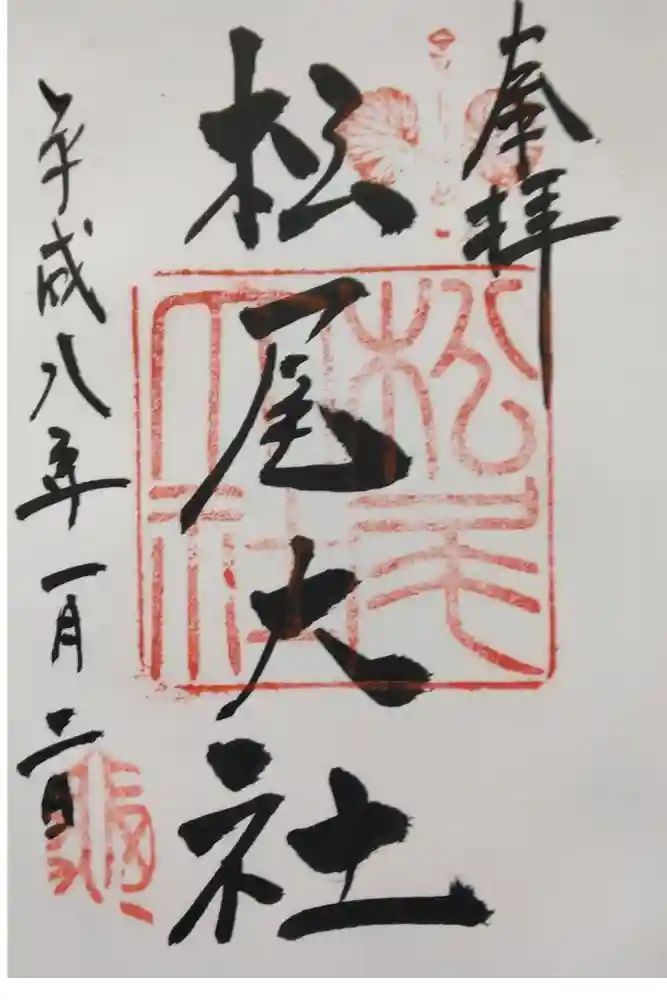 奉拝
松尾大社
松尾大社
平成八年一月二日